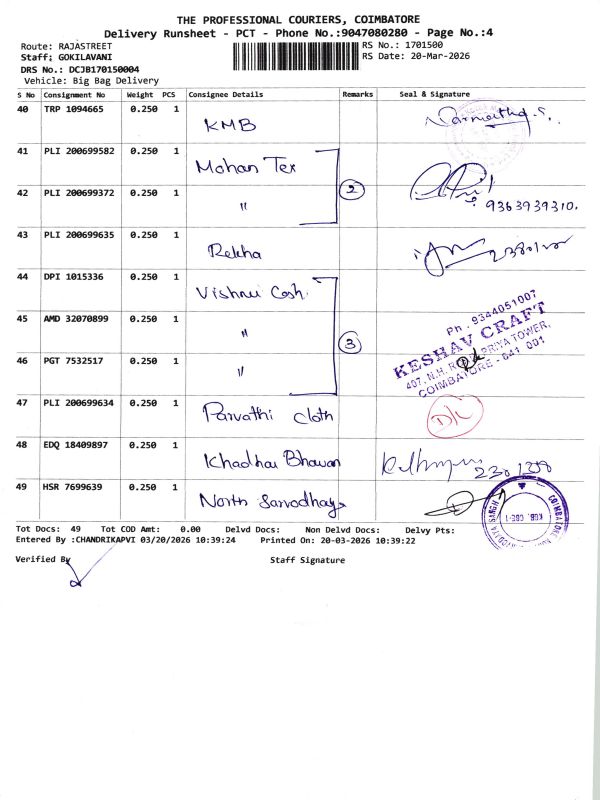 THE PROFESSIONAL COURIERS, COIMBATORE
Delivery Runsheet - PCT - Phone No.:9047080280 - Page No.:4
Route: RAJASTREET
RS No.: 1701500
Staff: GOKILAVANI
RS Date: 20-Mar-2026
DRS No.: DCJB170150004
Vehicle: Big Bag Delivery
S No Consignment No Weight PCS Consignee Details Remarks Seal & Signature
40 TRP 1094665 0.250 1 KMB
41 PLI 200699582 0.250 1 Mohan Tex
42 PLI 200699372 0.250 1 " 2 9363939310.
43 PLI 200699635 0.250 1 Rekha
44 DPI 1015336 0.250 1 Vishnu Cosh.
45 AMD 32070899 0.250 1 " 3
46 PGT 7532517 0.250 1 "
Ph . 9344051007
KESHAV CRAFT
407, N.H. PRIYA TOWER,
COIMBATORE - 641 001
47 PLI 200699634 0.250 1 Parvathi Cloth D/C
48 EDQ 18409897 0.250 1 Khadhai Bhawan
49 HSR 7699639 0.250 1 North Sarvodhaya
Tot Docs: 49 Tot COD Amt: 0.00 Delvd Docs: Non Delvd Docs: Delvy Pts:
Entered By :CHANDRIKAPVI 03/20/2026 10:39:24 Printed On: 20-03-2026 10:39:22
Verified By Staff Signature